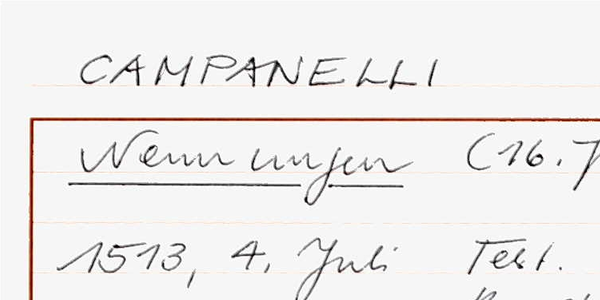 CAMPANELLI
Nennungen (16. J
1513, 4. Juli Test.